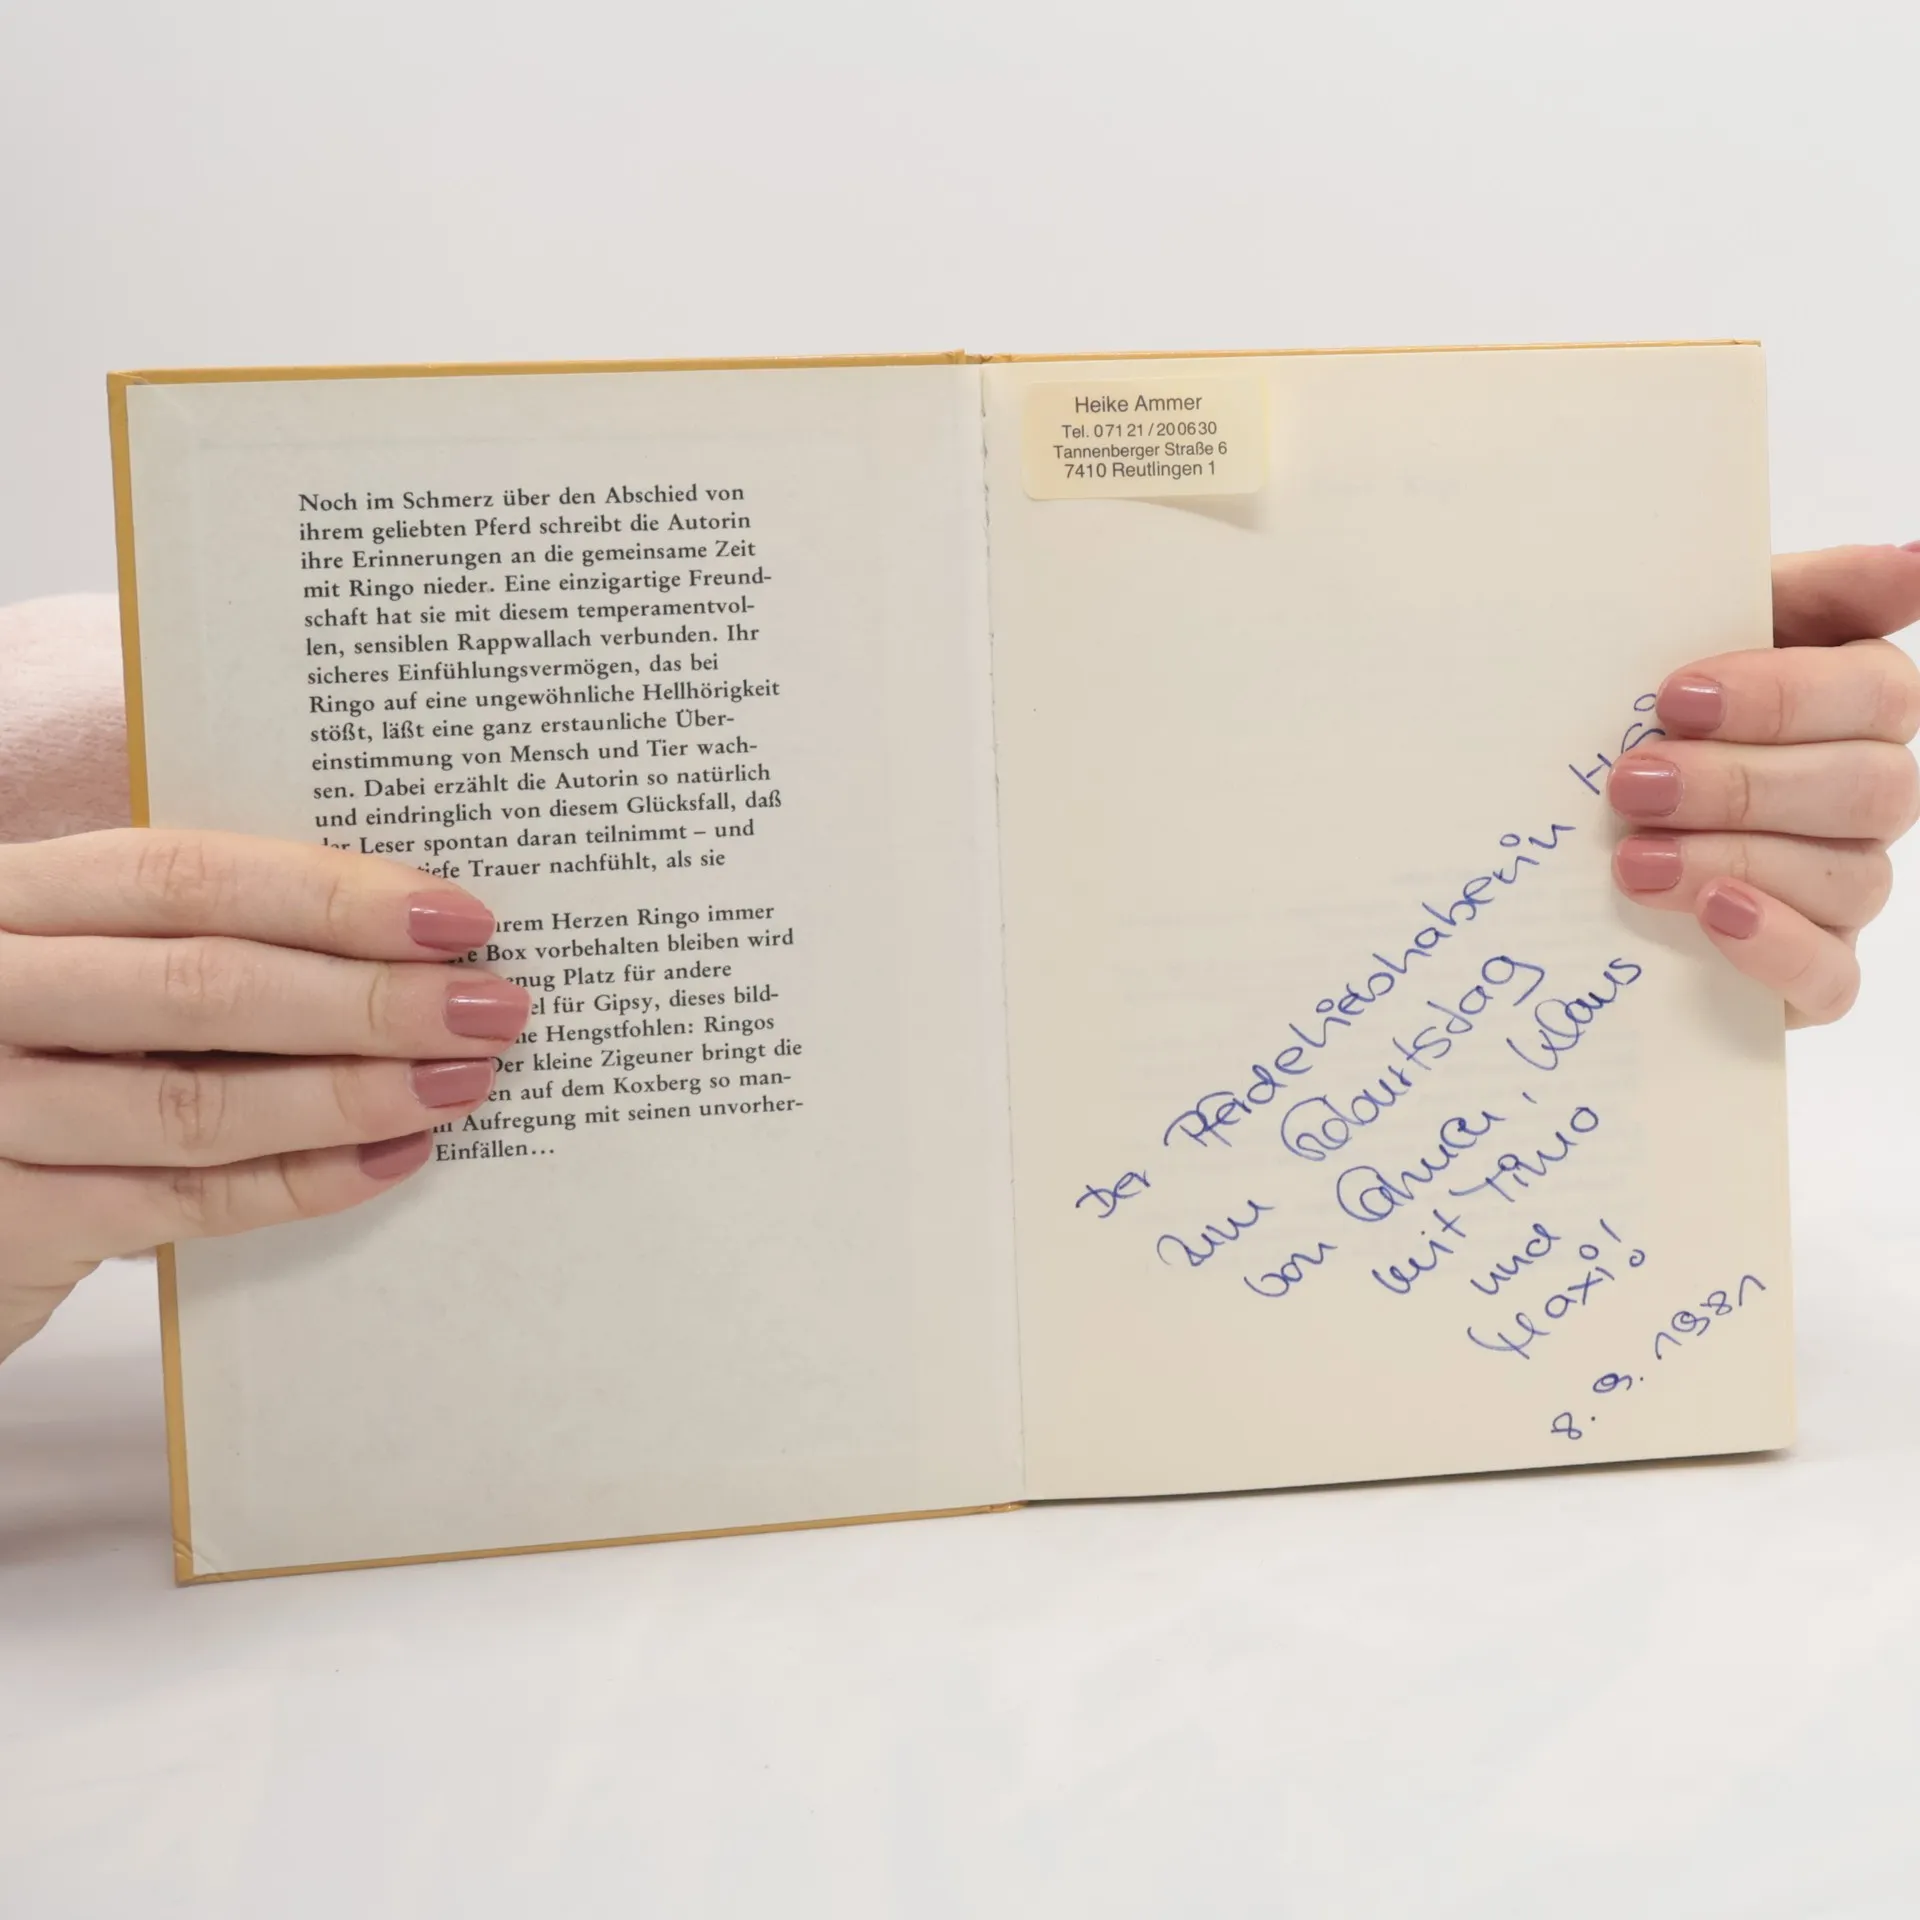 Noch im Schmerz über den Abschied von
ihrem geliebten Pferd schreibt die Autorin
ihre Erinnerungen an die gemeinsame Zeit
mit Ringo nieder. Eine einzigartige Freund-
schaft hat sie mit diesem temperamentvol-
len, sensiblen Rappwallach verbunden. Ihr
sicheres Einfühlungsvermögen, das bei
Ringo auf eine ungewöhnliche Hellhörigkeit
stößt, läßt eine ganz erstaunliche Über-
einstimmung von Mensch und Tier wach-
sen. Dabei erzählt die Autorin so natürlich
und eindringlich von diesem Glücksfall, daß
Leser spontan daran teilnimmt – und
Trauer nachfühlt, als sie
Herzen Ringo immer
Box vorbehalten bleiben wird
Platz für andere
für Gipsy, dieses bild-
Hengstfohlen: Ringos
Der kleine Zigeuner bringt die
auf dem Koxberg so man-
Aufregung mit seinen unvorher-
Einfällen...
Heike Ammer
Tel. 07121/200630
Tannenberger Straße 6
7410 Reutlingen 1
Der Pferdeliebhaberin
zum Geburtstag
von , Klaus
mit Timo
und
Maxi!
8. 9. 1981